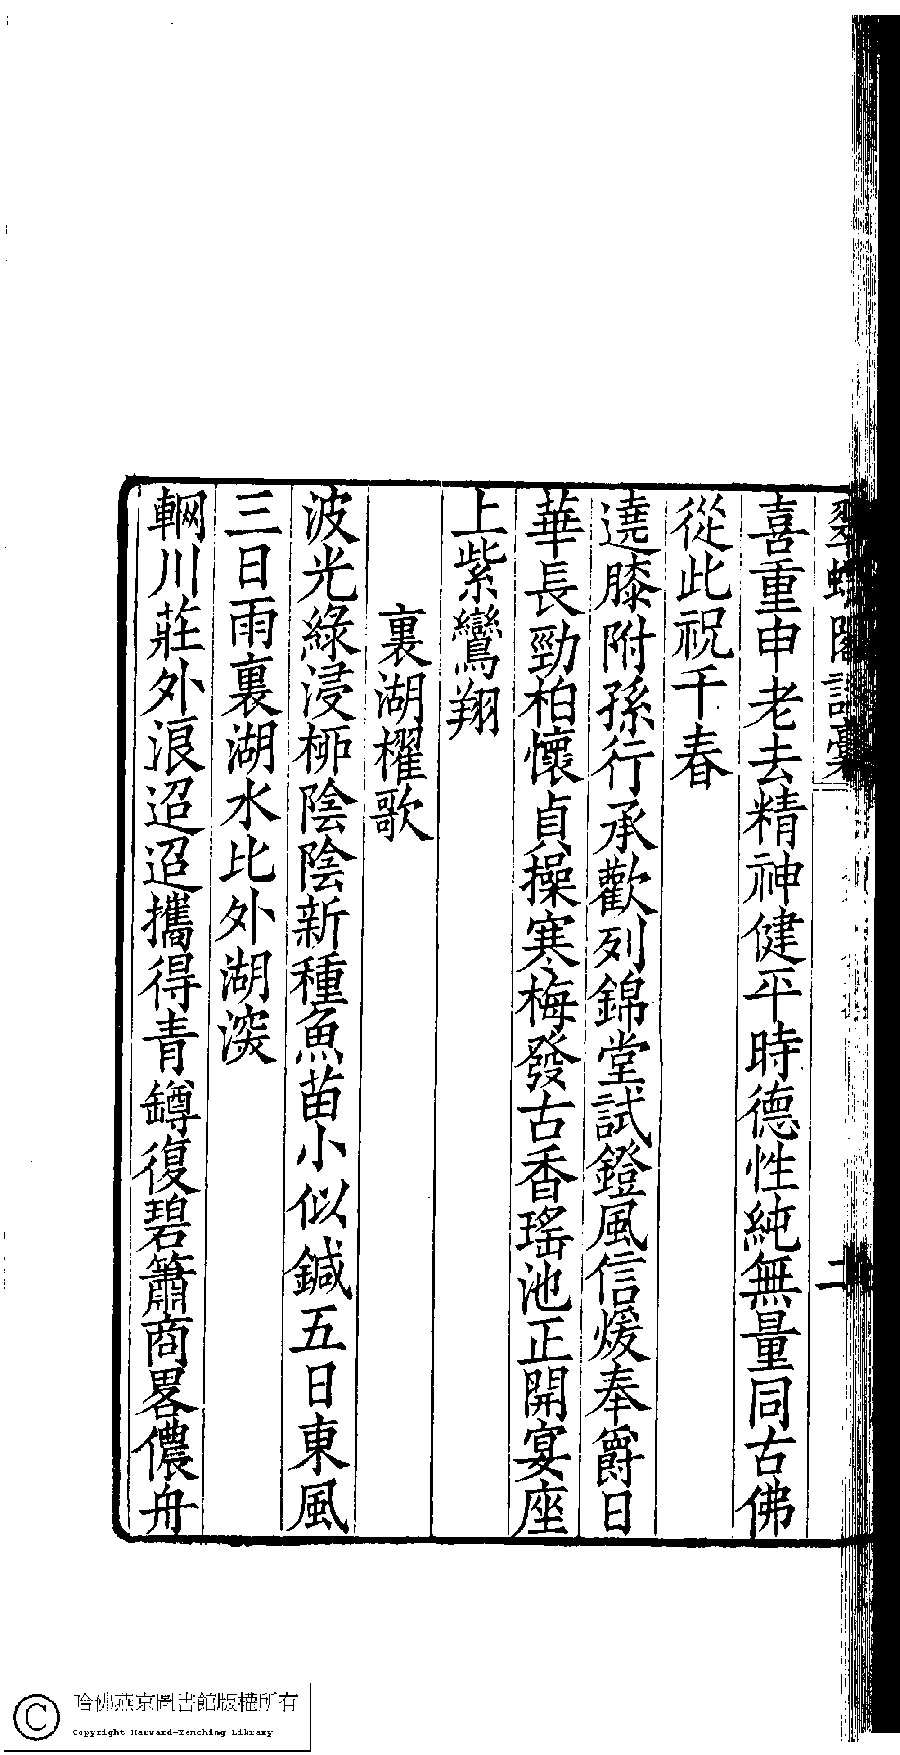 翠螺閣詩藳
二
喜重申老去精神健平時德性純無量同古佛
從此祝千春
遶膝附孫行承歡列錦堂試鐙風信煖奉爵日
華長勁柏懷貞操寒梅發古香瑤池正開宴座
上紫鸞翔
裏湖櫂歌
波光綠浸桺陰陰新種魚苗小似鍼五日東風
三日雨裏湖水比外湖深
輞川莊外浪迢迢攜得青罇復碧簫商畧儂舟
哈佛燕京圖書館版權所有
Copyright Harvard-Yenching Library